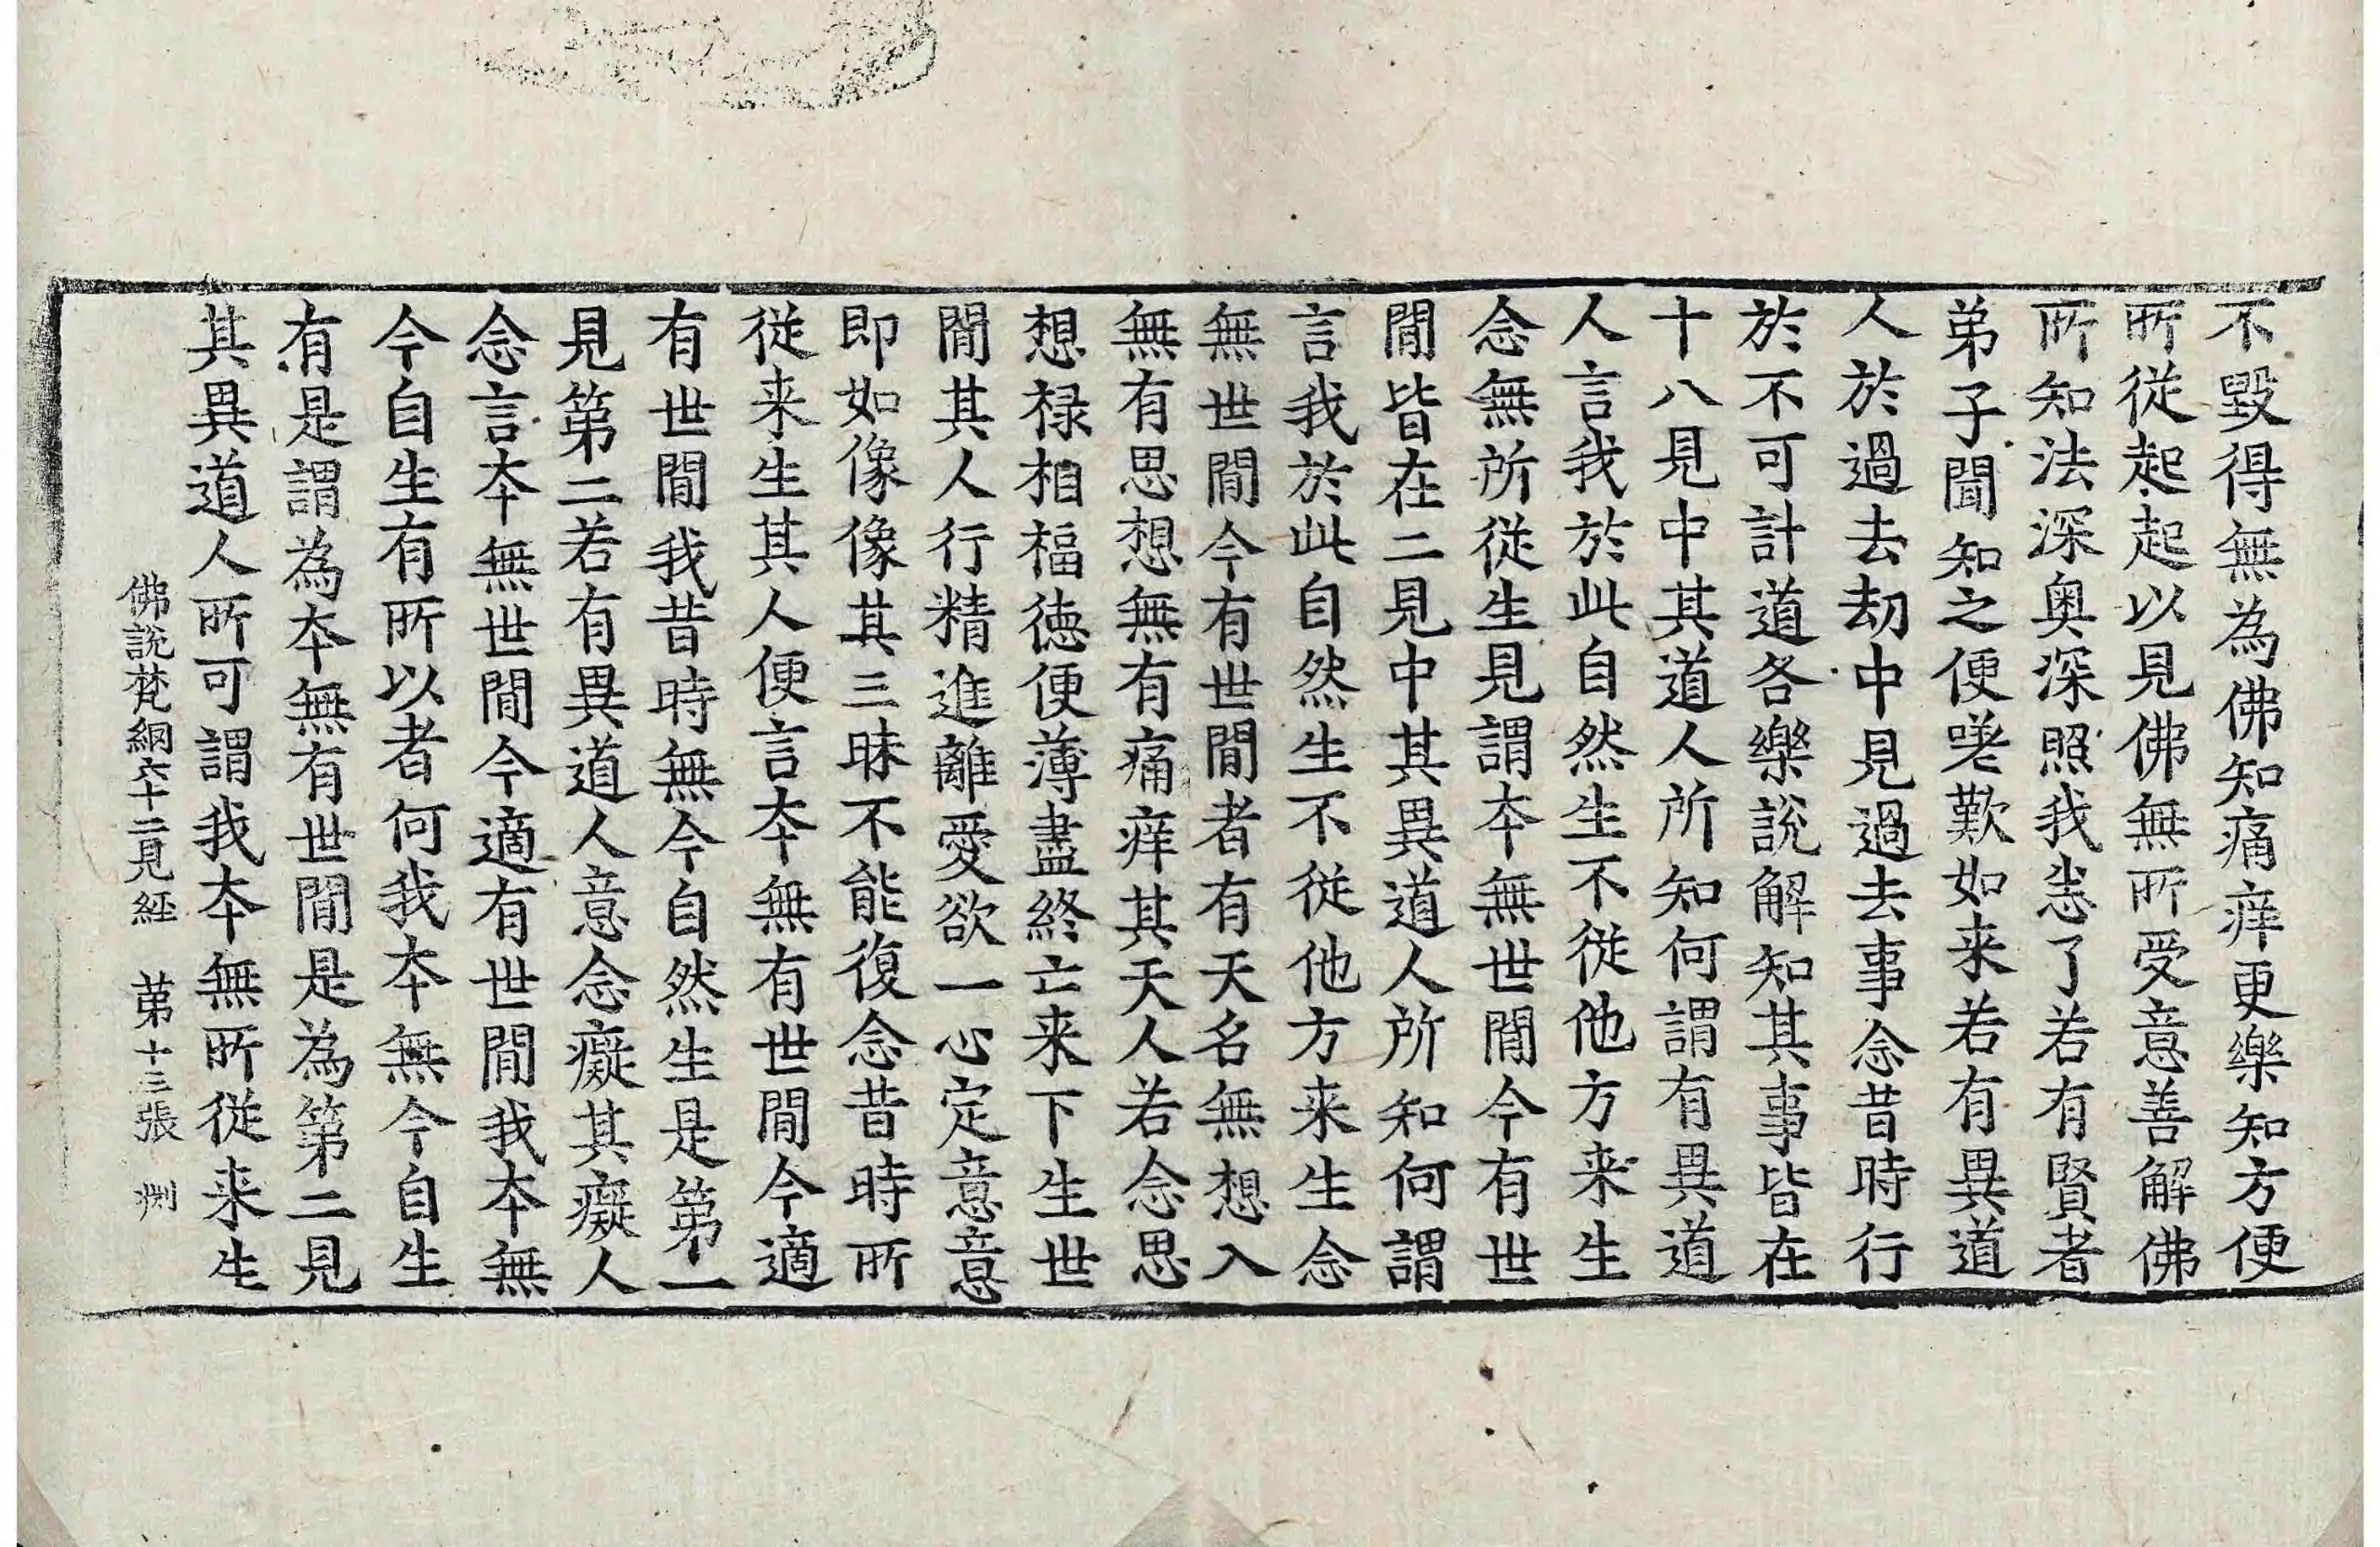 不毀得無為佛知痛痒更樂知方便
所従起起以見佛無所受意善解佛
所知法深奥深照我悉了若有賢者
弟子聞知之便嗟歎如来若有異道
人於過去劫中見過去事念昔時行
於不可計道各樂說解知其事皆在
十八見中其道人所知何謂有異道
人言我於此自然生不従他方来生
念無所従生見謂夲無世間今有世
間皆在二見中其異道人所知何謂
言我於此自然生不従他方来生念
無世間今有世間者有天名無想入
無有思想無有痛痒其天人若念思
想禄相福徳便薄盡終亡来下生世
間其人行精進離愛欲一心定意意
即如像像其三昧不能復念昔時所
従来生其人便言夲無有世間今適
有世間我昔時無今自然生是第一
見第二若有異道人意念癡其癡人
念言夲無世間今適有世間我夲無
今自生有所以者何我夲無今自生
有是謂為夲無有世間是為第二見
其異道人所可謂我夲無所従来生
佛說梵網六十二見経　苐十三張　㓮